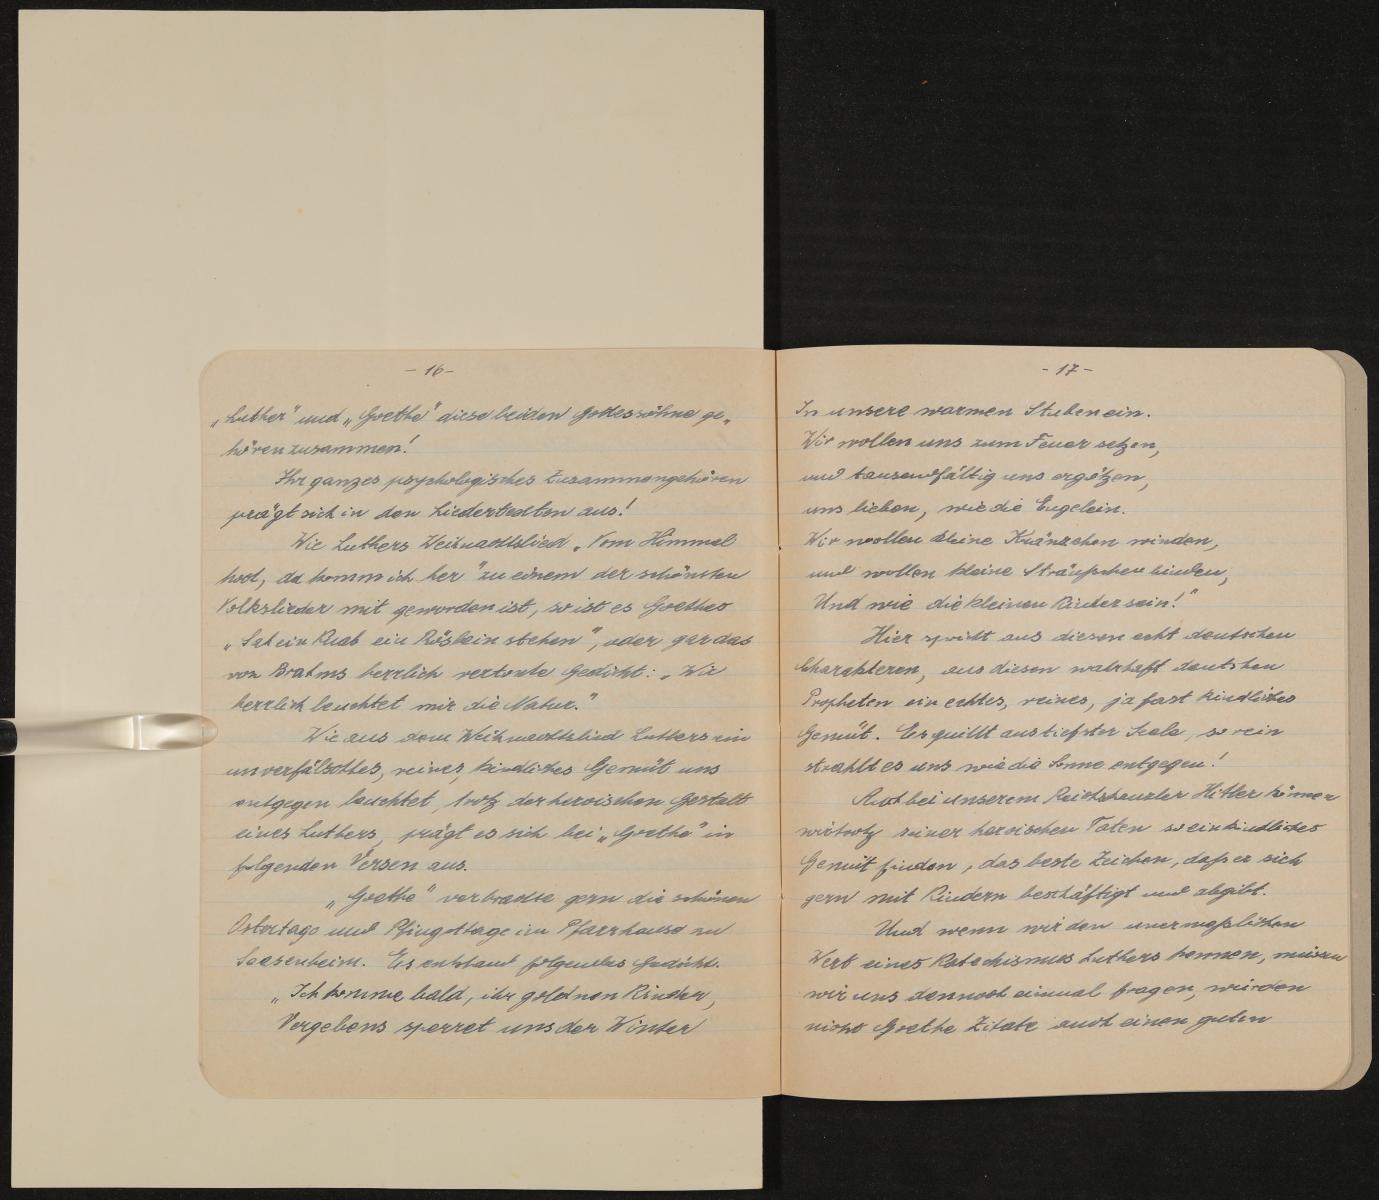 - 16 -
„Luther" und „Goethe" diese beiden Gottessöhne ge„
hören zusammen!
Ihr ganzes psychologisches Zusammengehören
prägt sich in den Liedertexten aus!
Wie Luthers Weihnachtslied „Vom Himmel
hoch, da komm ich her" zu einem der schönsten
Volkslieder mit geworden ist, so ist es Goethes
„Sah ein Knab ein Röslein stehen", oder gar das
von Brahms herrlich vertonte Gedicht: „Wie
herrlich leuchtet mir die Natur."
Wie aus dem Weihnachtslied Luthers ein
unverfälschtes, reines, kindliches Gemüt uns
entgegen leuchtet, trotz der heroischen Gestalt
eines Luthers, prägt es sich bei „Goethe" in
folgenden Versen aus.
„Goethe" verbrachte gern die schönen
Ostertage und Pfingsttage im Pfarrhause zu
Seesenheim. Es entstand folgendes Gedicht.
„Ich komme bald, ihr goldnen Kinder,
Vergebens sperret uns der Winter
- 17 -
In unsere warmen Stuben ein.
Wir wollen uns zum Feuer setzen,
und tausendfältig uns ergötzen,
uns lieben, wie die Engelein.
Wir wollen kleine Kränzchen winden,
und wollen kleine Sträußchen binden,
Und wie die kleinen Kinder sein!"
Hier spricht aus diesen echt deutschen
Charakteren, aus diesen wahrhaft deutschen
Propheten ein echtes, reines, ja fast kindliches
Gemüt. Es quillt aus tiefster Seele, so rein
strahlt es uns wie die Sonne entgegen!
Auch bei unserem Reichskanzler Hitler können
wir trotz seiner heroischen Taten so ein kindliches
Gemüt finden, das beste Zeichen, daß er sich
gern mit Kindern beschäftigt und abgibt.
Und wenn wir den unermeßlichen
Wert eines Katechismus Luthers kennen, müssen
wir uns dennoch einmal fragen, würden
nicht Goethe Zitate auch einen guten